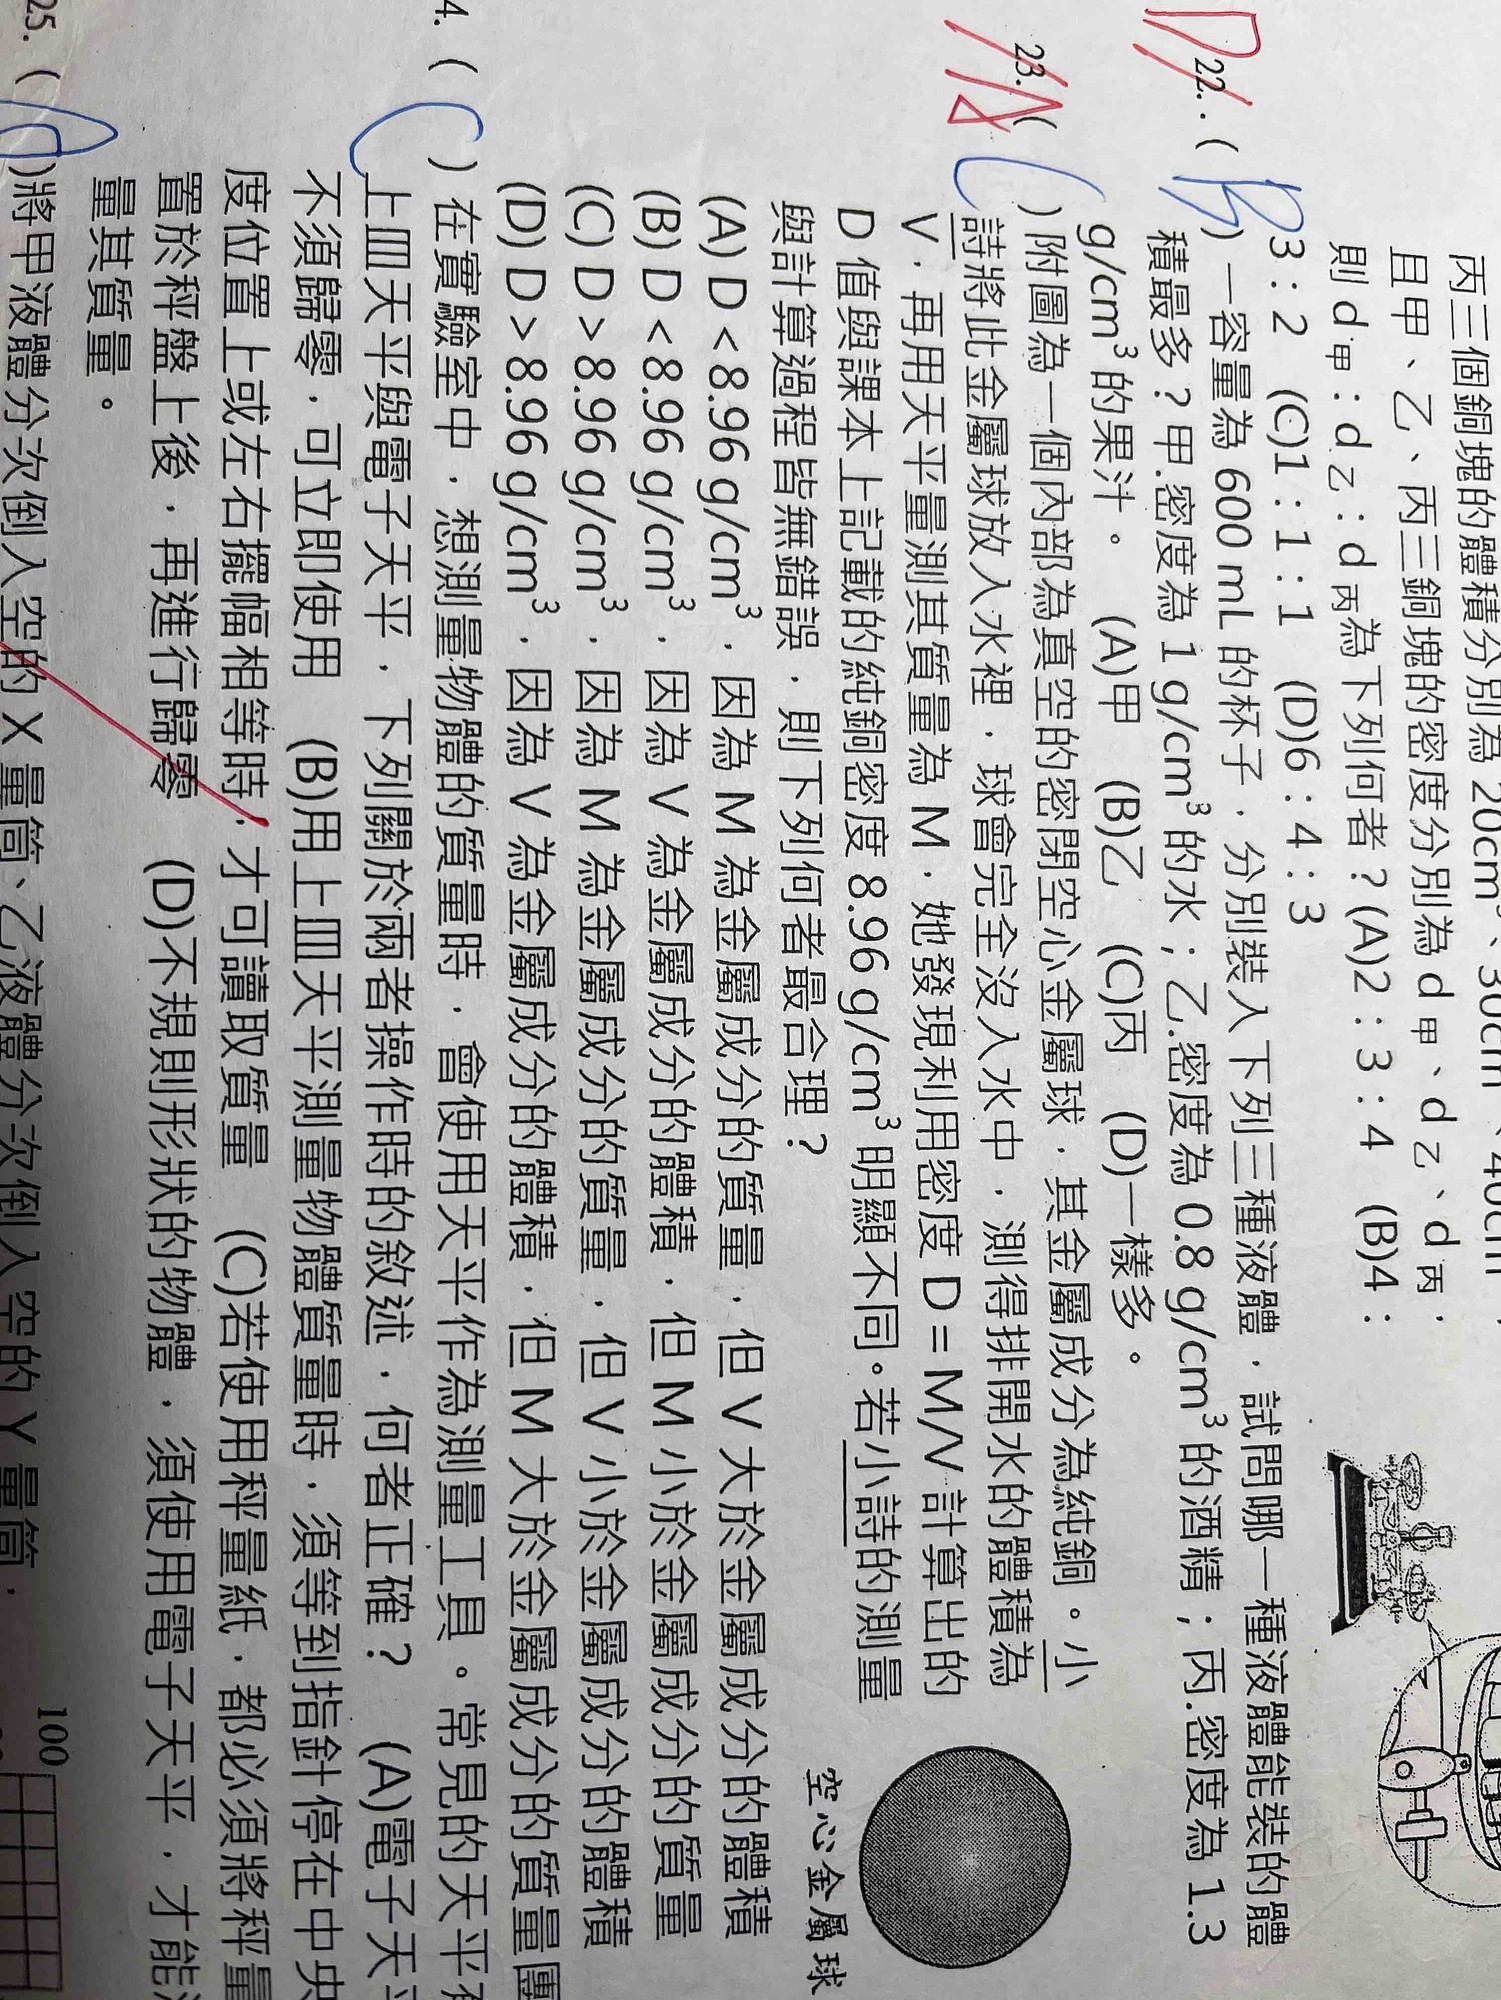 丙三個銅塊的體積分別為 20cm³、30cm³、40cm³，
且甲、乙、丙三銅塊的密度分別為 d甲、d乙、d丙，
則 d甲：d乙：d丙為下列何者？(A)2：3：4 (B)4：
3：2 (C)1：1：1 (D)6：4：3
D 22. ( B ) 一容量為 600 mL 的杯子，分別裝入下列三種液體，試問哪一種液體能裝的體
積最多？甲.密度為 1 g/cm³ 的水；乙.密度為 0.8 g/cm³ 的酒精；丙.密度為 1.3
g/cm³ 的果汁。 (A)甲 (B)乙 (C)丙 (D)一樣多。
A 23. ( C ) 附圖為一個內部為真空的密閉空心金屬球，其金屬成分為純銅。小
詩將此金屬球放入水裡，球會完全沒入水中，測得排開水的體積為
V，再用天平量測其質量為 M，她發現利用密度 D = M/V 計算出的
D 值與課本上記載的純銅密度 8.96 g/cm³ 明顯不同。若小詩的測量
與計算過程皆無錯誤，則下列何者最合理？
(A) D < 8.96 g/cm³，因為 M 為金屬成分的質量，但 V 大於金屬成分的體積
(B) D < 8.96 g/cm³，因為 V 為金屬成分的體積，但 M 小於金屬成分的質量
(C) D > 8.96 g/cm³，因為 M 為金屬成分的質量，但 V 小於金屬成分的體積
(D) D > 8.96 g/cm³，因為 V 為金屬成分的體積，但 M 大於金屬成分的質量
空心金屬球
4. ( C ) 在實驗室中，想測量物體的質量時，會使用天平作為測量工具。常見的天平有
上皿天平與電子天平，下列關於兩者操作時的敘述，何者正確？ (A)電子天平
不須歸零，可立即使用 (B)用上皿天平測量物體質量時，須等到指針停在中央
度位置上或左右擺幅相等時，才可讀取質量 (C)若使用秤量紙，都必須將秤量
置於秤盤上後，再進行歸零 (D)不規則形狀的物體，須使用電子天平，才能
量其質量。
25. ( A )將甲液體分次倒入空的 X 量筒、乙液體分次倒入空的 Y 量筒，
100